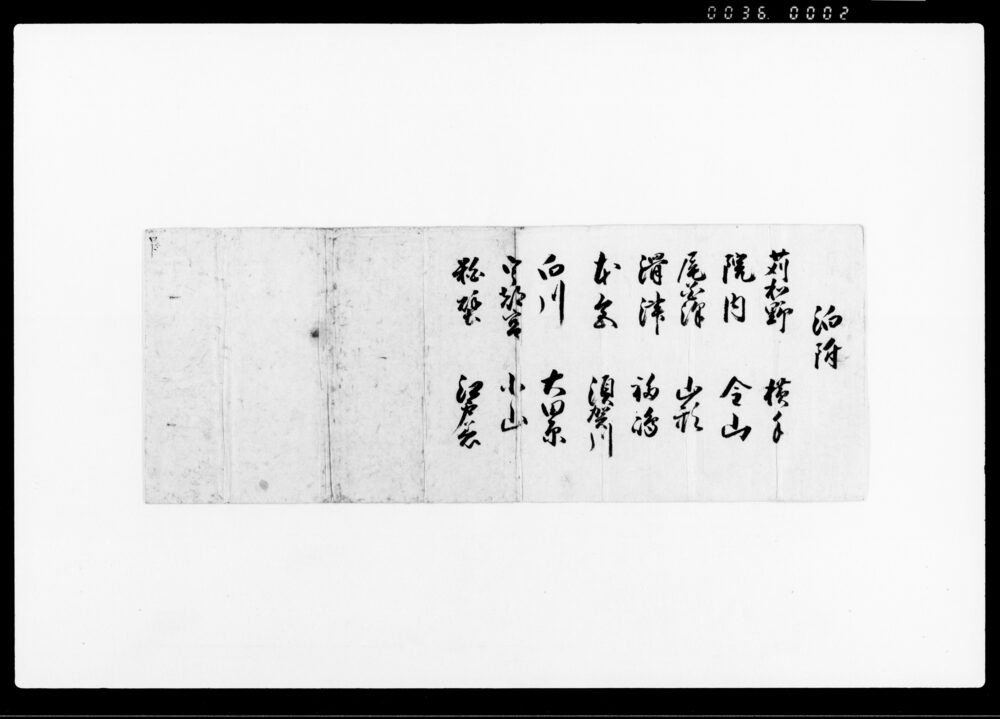 0036. 0002
泊附
苅和野 横手
院内 金山
尾花沢 山形
滑津 福嶋
本宮 須賀川
白川 大田原
宇都宮 小山
粕壁 江戸着